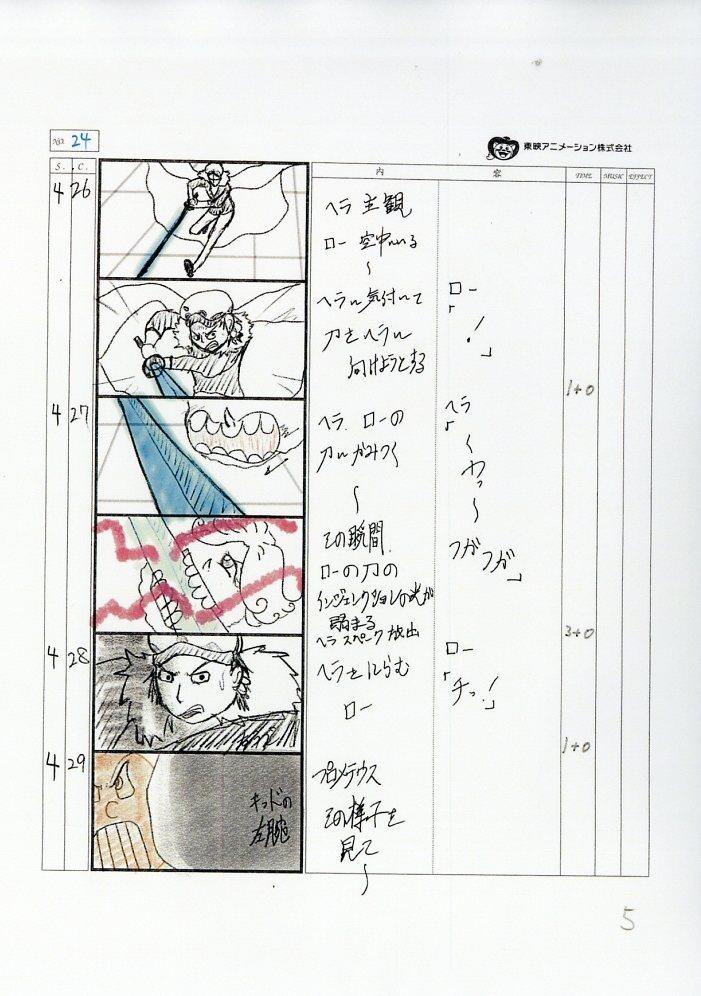 NO. 24
東映アニメーション株式会社
S. C. 内 容 TIME MUSIC EFFECT
4 26
ヘラ 主観
ロー 空中にいる
〜
ヘラに気付いて
刀をヘラに
向けようとする
ロー
「!」
1+0
4 27
ヘラ、ローの
刀にかみつく
〜
ヘラ
「くわっ
〜
その瞬間
ローの刀の
インジェクションの光が
弱まる
ヘラ スパーク放出
フガ
フガ」
3+0
4 28
ヘラをにらむ
ロー
ロー
「チっ!」
1+0
4 29
キッドの
左腕
プロメテウス
その様子を
見て
〜
5